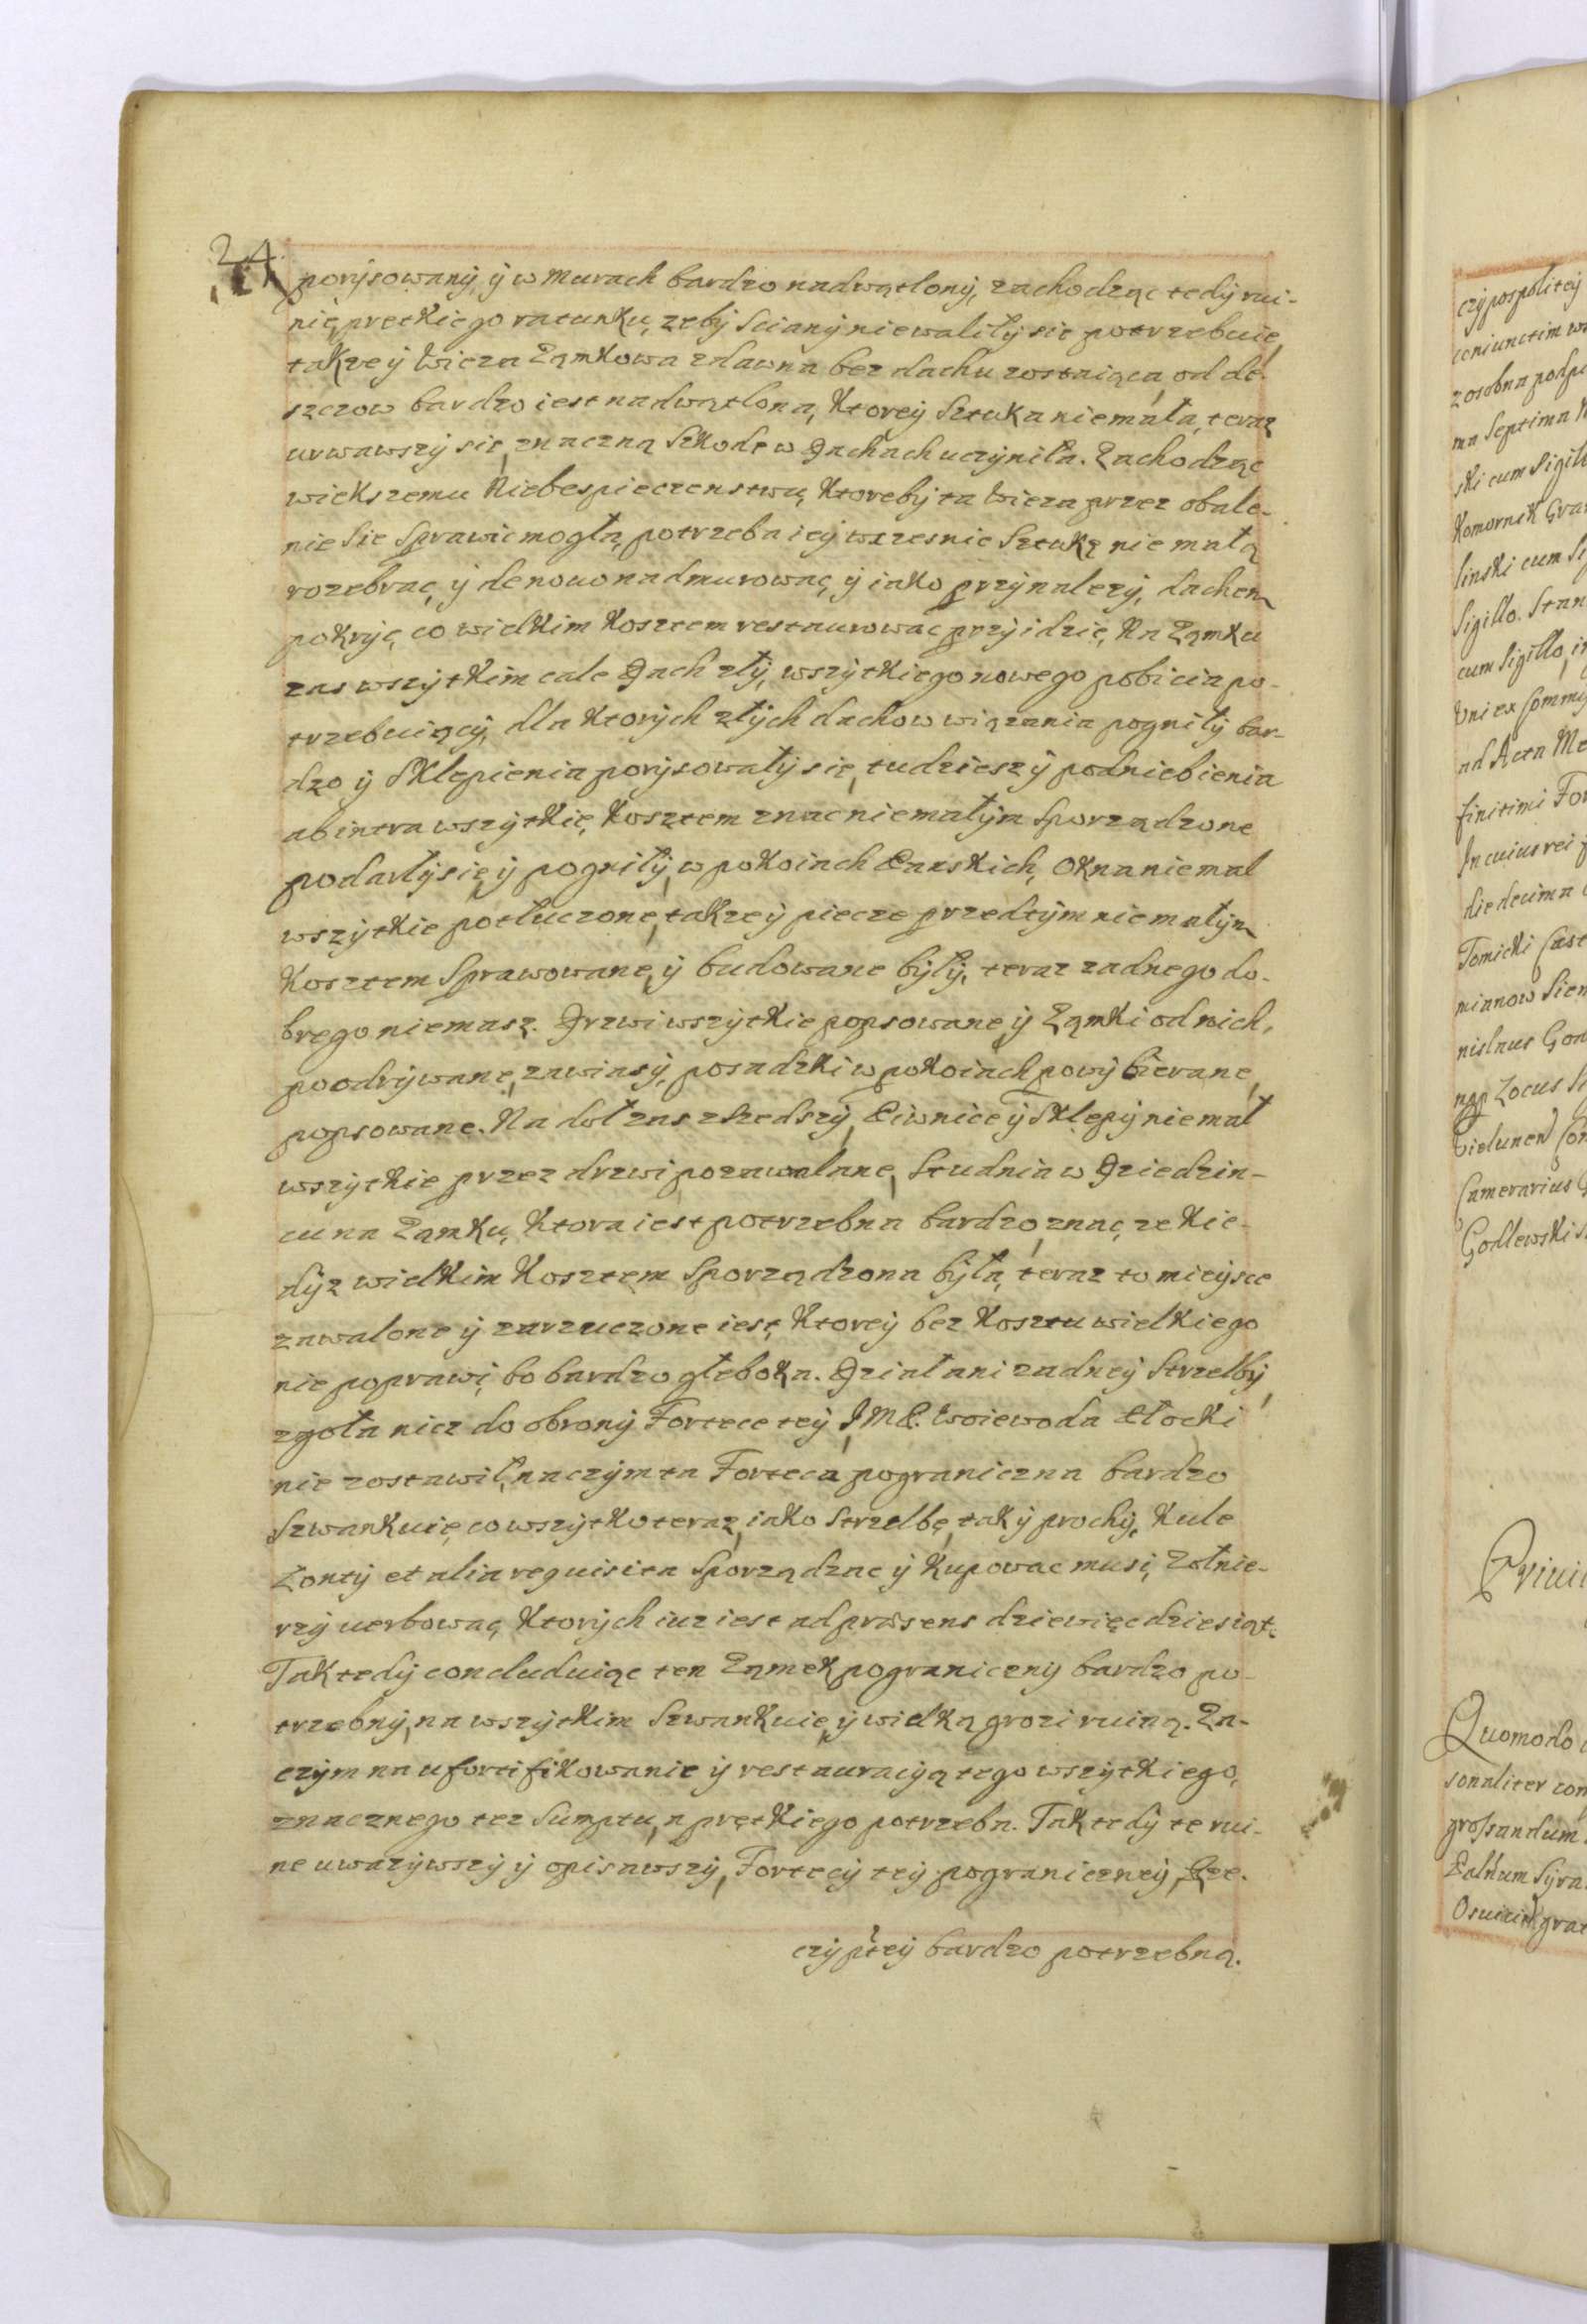 24.
porysowany, y w murach bardzo nadwątlony, zachodząc tedy rui-
nie, prętkiego ratunku, zeby sciany niewaliły się potrzebuie,
takze y Wieza Zamkowa zdawna bez dachu zostaiąca, od de-
szczow bardzo iest nadwątlona, Ktorey Sztuka niemała, teraz
urwawszy się, znaczną Szkodę w Dachach uczyniła. Zachodząc
wiekszemu Niebespieczenstwu, Ktoreby ta Wieza przez obale-
nie się Sprawic mogła, potrzeba iey wczesnie Sztukę nie małą
rozebrac, y de novo nadmurowac, y iako przynalezy, dachem
pokryc, co wielkim Kosztem restaurowac przyidzie, Na Zamku
zas wszytkim cale Dach zły, wszytkiego nowego pobicia po-
trzebuiący, dla Ktorych złych dachow wiązania pogniły bar-
dzo y Sklepienia porysowały się, tudziesz y podniebienia
ab intra wszytkie, Kosztem znac niemałym Sporządzone
podarły się, y pogniły, w pokoiach Panskich, Okna niemal
wszytkie potłuczone, takze y piecze przedtym niemałym
Kosztem Sprawowane, y budowane były, teraz zadnego do-
brego niemasz. Drzwi wszytkie popsowane y Zamki od nich,
poodrywane, zawiasy, posadzki w pokoiach powybierane,
popsowane. Na doł zas zszedszy, Piwnice y Sklepy niemal
wszytkie przez drzwi pozawalane, Studnia w Dziedzin-
cu na Zamku, Ktora iest potrzebna bardzo, znac, ze Kie-
dyz wielkim Kosztem Sporządzona była, teraz to mieysce
zawalone y zarzuczone iest, Ktorey bez Kosztu wielkiego
nie poprawi, bo bardzo głeboka. Dział ani zadney Strzelby
zgoła nicz do obrony Fortece tey, JMP. Woiewoda Płocki
nie zostawił, na czym ta Forteca pograniczna bardzo
Szwankuie, co wszytko teraz, iako Strzelbę, tak y prochy, Kule
Lonty et alia requisita Sporządzac y Kupowac musi, Zołnie-
rzy uerbowac, Ktorych iuz iest ad præsens dziewięcdziesiąt.
Tak tedy concluduiąc ten Zamek pograniczny bardzo po-
trzebny, na wszytkim Szwankuie, y wielką grozi ruiną. Za-
czym na ufortifikowanie y restauracyą tego wszytkiego,
znacznego tez Sumptu, a prętkiego potrzeba. Tak tedy te rui-
ne uwazywszy y opisawszy, Fortecy tey pograniczney, Rze-
czyptey bardzo potrzebną.
czypospolitey
coniunctim
z osobna
ma Septima
ski cum Sigill
Komornik
linski cum
Sigillo. Stan
cum Sigillo,
Uni ex
ad Acta Me
finitimi For
In cuius rei
die decima
Tomicki Cast
mianow Sien
nislaus
Locus
Camerarius
Godlewski
Quomodo
sonaliter con
grossandum